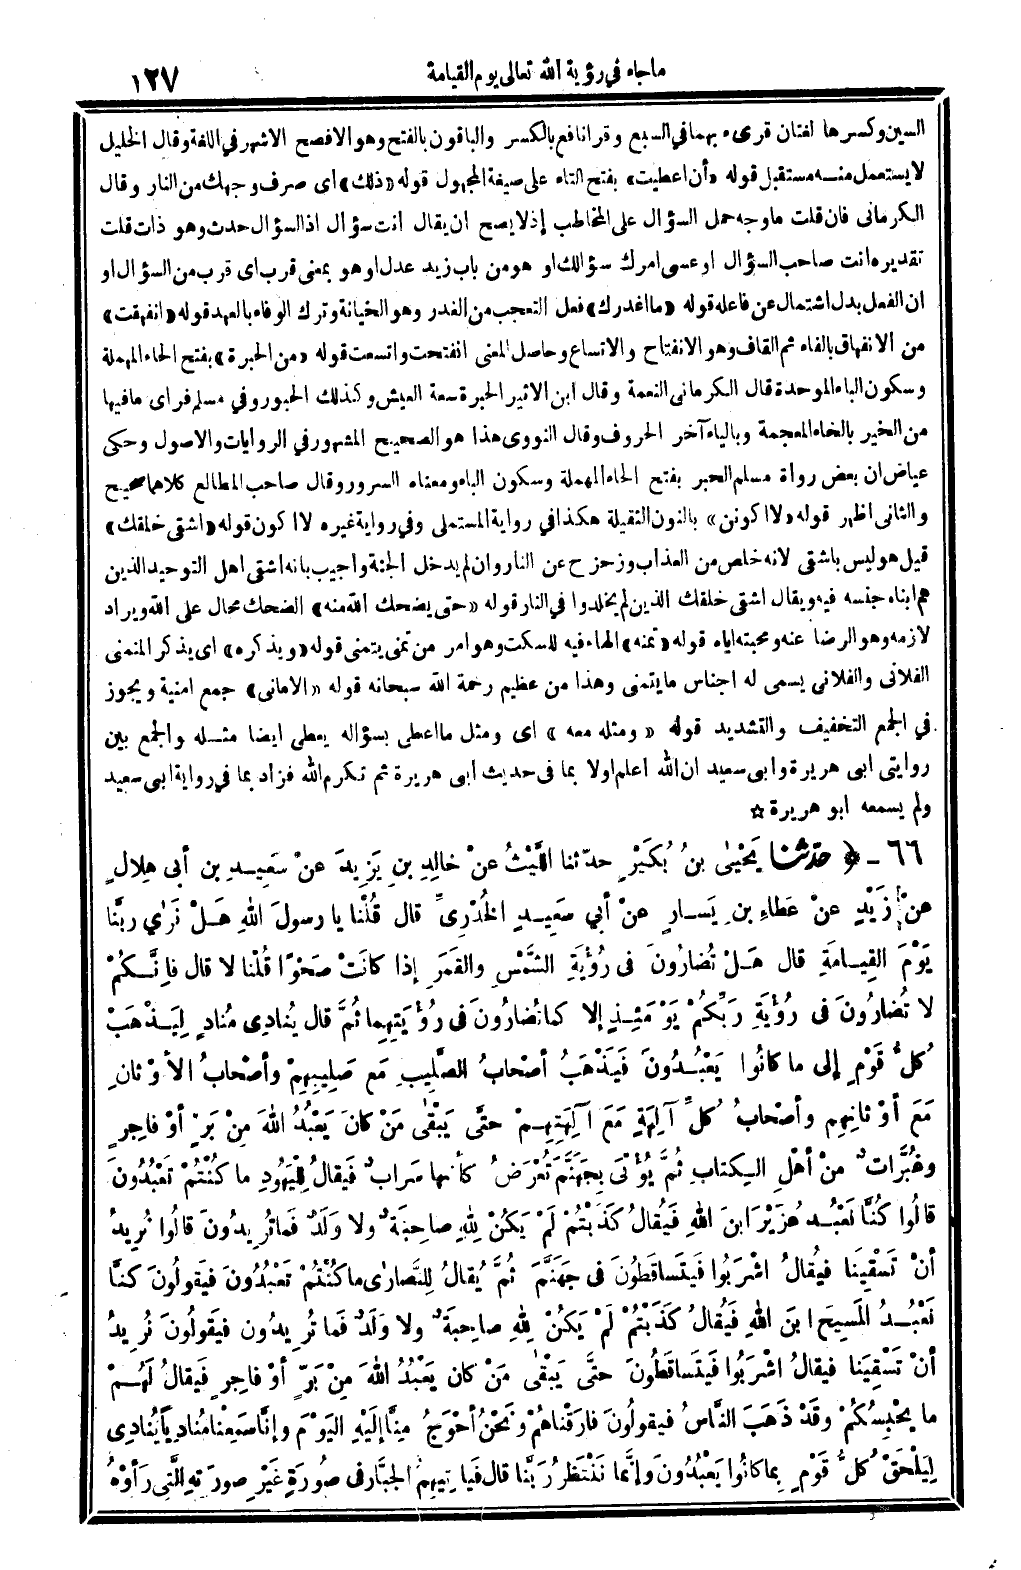 ماجاء في رؤية الله تعالى يوم القيامة ١٢٧
السين وكسرها لغتان قرىء بهما في السبع وقرا نافع بالكسر والباقون بالفتح وهو الافصح الاشهر في اللغة وقال الخليل
لا يستعمل منه مستقبل قوله «أن اعطيت» بفتح التاء على صيغة المجهول قوله «ذلك» اى صرف وجهك من النار وقال
الكرمانى فان قلت ما وجه حمل السؤال على المخاطب إذ لا يصح ان يقال انت سؤال اذ السؤال حدث وهو ذات قلت
تقديره انت صاحب السؤال او عسى امرك سؤالك او هو من باب زيد عدل او هو بمعنى قرب اى قرب من السؤال او
ان الفعل بدل اشتمال عن فاعله قوله «ما اغدرك» فعل التعجب من الغدر وهو الخيانة وترك الوفاء بالعهد قوله «انفهقت»
من الانفهاق بالفاء ثم القاف وهو الانفتاح والاتساع وحاصل المعنى انفتحت واتسعت قوله «من الحبرة» بفتح الحاء المهملة
وسكون الباء الموحدة قال الكرمانى النعمة وقال ابن الاثير الحبرة سعة العيش وكذلك الحبور وفي مسلم فراى مافيها
من الخير بالخاء المعجمة وبالياء آخر الحروف وقال النووى هذا هو الصحيح المشهور في الروايات والاصول وحكى
عياض ان بعض رواة مسلم الحبر بفتح الحاء المهملة وسكون الباء ومعناه السرور وقال صاحب المطالع كلاهما صحيح
والثانى اظهر قوله «لا اكونن» بالنون الثقيلة هكذا في رواية المستملى وفي رواية غيره لا اكون قوله «اشقى خلقك»
قيل هو ليس باشقى لانه خلص من العذاب وزحزح عن النار وان لم يدخل الجنة واجيب بانه اشقى اهل التوحيد الذين
هم ابناء جنسه فيه ويقال اشقى خلقك الذين لم يخلدوا في النار قوله «حتى يضحك الله منه» الضحك محال على الله ويراد
لازمه وهو الرضا عنه ومحبته اياه قوله «تمنه» الهاء فيه للسكت وهو امر من تمنى يتمنى قوله «ويذكره» اى يذكر المتمنى
الفلانى والفلانى يسمى له اجناس ما يتمنى وهذا من عظيم رحمة الله سبحانه قوله «الامانى» جمع امنية ويجوز
في الجمع التخفيف والتشديد قوله «ومثله معه» اى ومثل ما اعطى بسؤاله يعطى ايضا مثله والجمع بين
روايتى ابى هريرة وابى سعيد ان الله اعلم اولا بما فى حديث ابى هريرة ثم تكرم الله فزاد بما في رواية ابى سعيد
ولم يسمعه ابو هريرة ☆
٦٦ ـ ﴿ حَدَّثَنَا يَحْيىٰ بنُ بُكَيْرٍ حدّثنا اللَّيْثُ عنْ خالِدِ بنِ يَزِيدَ عنْ سَعِيدِ بنِ أبى هِلالٍ
عنْ زَيْدٍ عنْ عَطاءِ بنِ يَسارٍ عنْ أبي سَعِيدٍ الخُدْرِىِّ قال قُلْنا يا رسولَ اللهِ هَلْ نَرٰي ربَّنا
يَوْمَ القِيامَةِ قال هَلْ تُضارُونَ فى رُؤْيَةِ الشَّمْسِ والقَمَرِ إذا كانَتْ صَحْوًا قُلْنا لا قال فإنَّكُمْ
لا تُضارُونَ فى رُؤْيَةِ رَبِّكُمْ يَوْمَئِذٍ إلا كما تُضارُونَ فى رُؤْيَتِهِما ثُمَّ قال يُنادِى مُنادٍ لِيَذْهَبْ
كُلُّ قَوْمٍ إلى ما كانُوا يَعْبُدُونَ فَيَذْهَبُ أصْحابُ الصَّلِيبِ مَع صَلِيبِهِمْ وأصْحابُ الأوْثانِ
مَعَ أوْثانِهِم وأصْحابُ كلِّ آلِهَةٍ مَعَ آلِهَتِهِمْ حتَّى يَبْقٰى مَنْ كانَ يَعْبُدُ اللهَ مِنْ بَرٍّ أوْ فاجِرٍ
وغُبَّراتٌ مِنْ أهْلِ الكِتابِ ثُمَّ يُؤْتٰى بِجَهَنَّمَ تُعْرَضُ كأنها سَرابٌ فَيقالُ لِلْيَهُودِ ما كُنْتُمْ تَعْبُدُونَ
قالُوا كُنَّا نَعْبُدُ عُزَيْرَ ابنَ اللهِ فَيُقالُ كَذَبْتُمْ لَمْ يَكُنْ لِلهِ صاحِبَةٌ ولا وَلَدٌ فَما تُرِيدُونَ قالُوا نُرِيدُ
أنْ تَسْقِيَنا فيُقالُ اشْرَبُوا فَيَتَساقَطُونَ فى جَهَنَّمَ ثُمَّ يُقالُ لِلنَّصارٰى ما كُنْتُمْ تَعْبُدُونَ فيَقُولُونَ كنَّا
نَعْبُدُ المَسِيحَ ابنَ اللهِ فَيُقالُ كَذَبْتُمْ لَمْ يَكُنْ لِلهِ صاحِبَةٌ ولا وَلَدٌ فَما تُرِيدُون فيَقُولُونَ نُرِيدُ
أنْ تَسْقِيَنا فيقالُ اشْرَبُوا فَيَتَساقَطُونَ حتَّى يَبْقٰى مَنْ كان يَعْبُدُ اللهَ مِنْ بَرٍّ أوْ فاجِرٍ فَيقالُ لَهُمْ
ما يَحْبِسُكُمْ وقَدْ ذَهَبَ النَّاسُ فيقُولُونَ فارَقْناهُمْ ونَحْنُ أحْوَجُ مِنَّا إلَيْهِ اليَوْمَ وإنَّا سَمِعْنا مُنادِيًا يُنادِى
لِيَلْحَقْ كُلُّ قَوْمٍ بِما كانُوا يَعْبُدُونَ وإنَّما نَنْتَظِرُ رَبَّنا قال فَيأتِيهِمُ الجَبَّارُ فى صُورَةٍ غَيْرِ صورَتِهِ الَّتِى رَأوْهُ